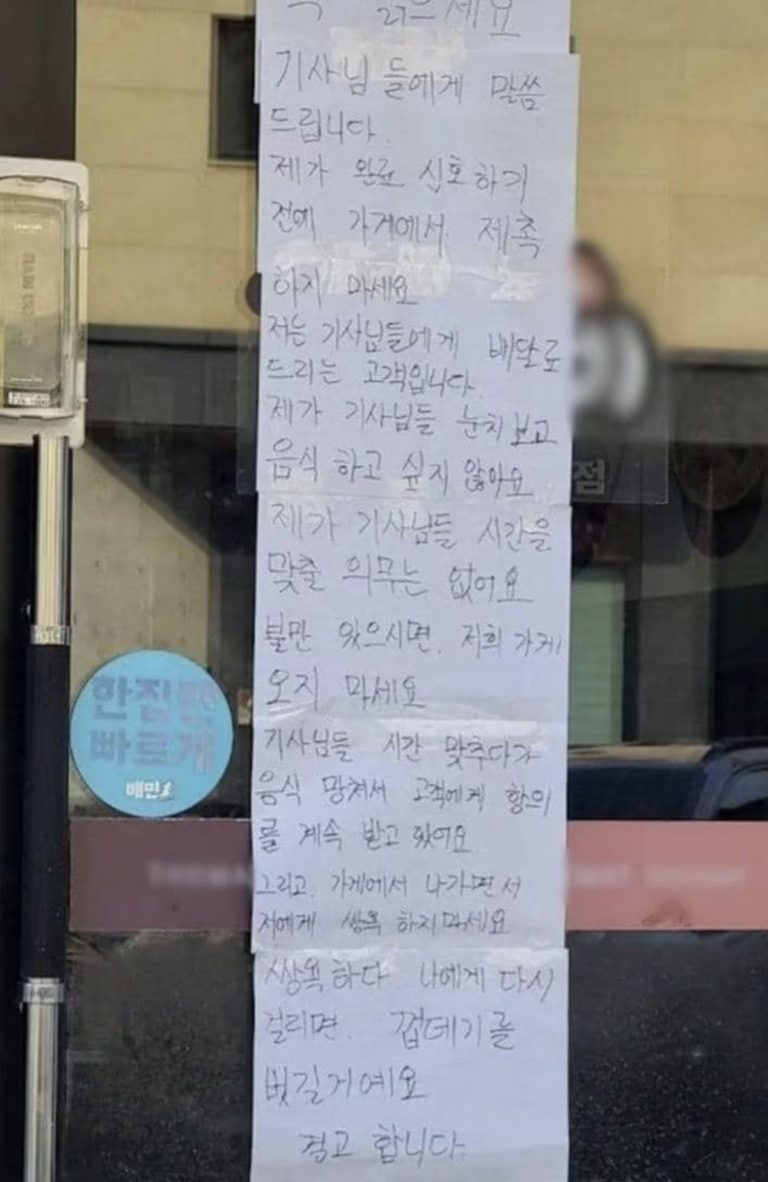 읽으세요
기사님들에게 말씀
드립니다.
제가 완료 신호하기
전에 가게에서 제촉
하지 마세요
저는 기사님들에게 배달료
드리는 고객입니다.
제가 기사님들 눈치보고
음식 하고 싶지 않아요
점
제가 기사님들 시간을
맞출 의무는 없어요
불만 있으시면. 저희 가게
오지 마세요
한집만
빠르게
배민1
기사님들 시간 맞추다가
음식 망쳐서 고객에게 항의
를 계속 받고 있어요
그리고. 가게에서 나가면서
저에게 쌍욕 하지마세요
쌍욕하다 나에게 다시
걸리면. 껍데기를
벗길거예요
경고 합니다.